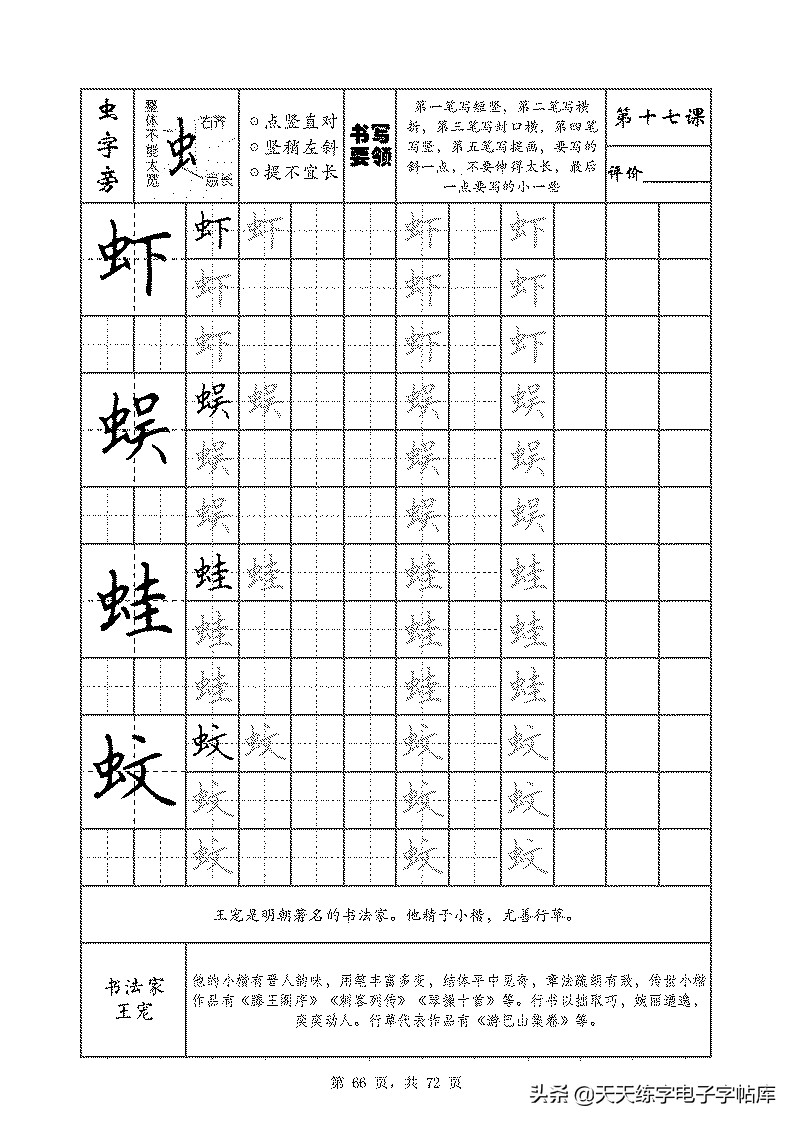 虫字旁
整体不能太宽
虫
右齐
点竖直对
竖稍左斜
提不宜长
书写要领
第一笔写短竖，第二笔写横
折，第三笔写封口横，第四笔
写竖，第五笔写提画，要写的
斜一点，不要伸得太长，最后
一点要写的小一些
第十七课
评价
虾 虾 虾 虾 虾
虾 虾 虾
虾 虾 虾
蜈 蜈 蜈 蜈 蜈
蜈 蜈 蜈
蜈 蜈 蜈
蛙 蛙 蛙 蛙 蛙
蛙 蛙 蛙
蛙 蛙 蛙
蚊 蚊 蚊 蚊 蚊
蚊 蚊 蚊
蚊 蚊 蚊
王宠是明朝著名的书法家。他精于小楷，尤善行草。
书法家
王宠
他的小楷有晋人韵味，用笔丰富多变，结体平中见奇，章法疏朗有致，传世小楷
作品有《滕王阁序》《刺客列传》《琴操十首》等。行书以拙取巧，婉丽遒逸，
奕奕动人。行草代表作品有《游包山集卷》等。
第 66 页，共 72 页
头条 @天天练字电子字帖库